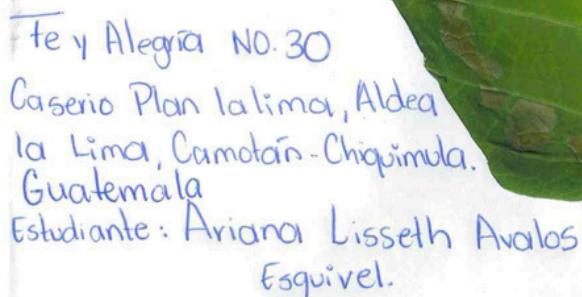 Fe y Alegría NO. 30
Caserio Plan lalima, Aldea
la Lima, Camotán-Chiquimula.
Guatemala
Estudiante: Ariana Lisseth Avalos
Esquivel.